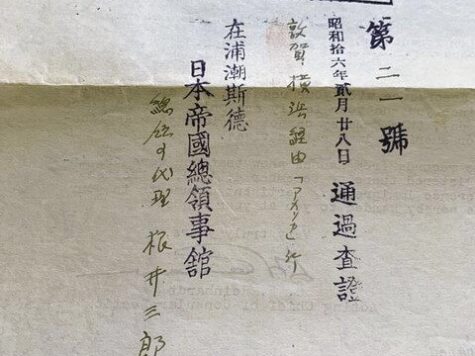 第二一號
昭和拾六年貳月廿八日 通過査證
敦賀橫浜経由「アメリカ」行
在浦潮斯德
日本帝國總領事舘
總領事代理 根井三郎